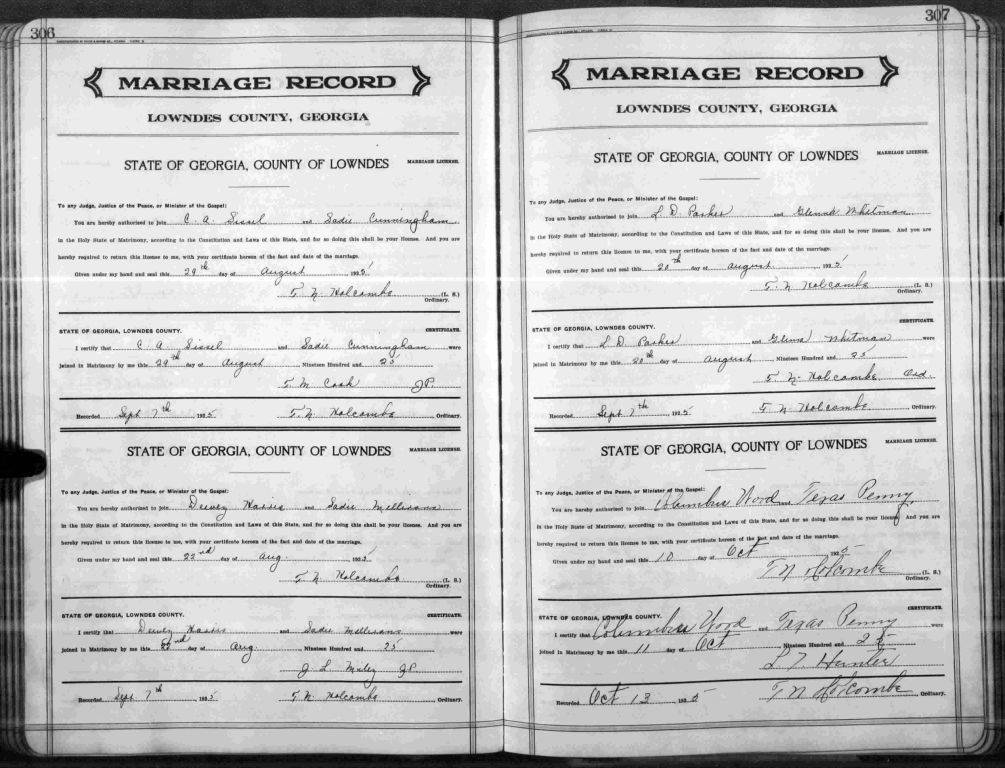 306
MARRIAGE RECORD
LOWNDES COUNTY, GEORGIA
STATE OF GEORGIA, COUNTY OF LOWNDES MARRIAGE LICENSE.
To any Judge, Justice of the Peace, or Minister of the Gospel:
You are hereby authorized to join C. A. Sissel and Sadie Cunningham
in the Holy State of Matrimony, according to the Constitution and Laws of this State, and for so doing this shall be your license. And you are
hereby required to return this license to me, with your certificate hereon of the fact and date of the marriage.
Given under my hand and seal this 29th day of August, 1925
T. N. Holcombe (L. S.)
Ordinary.
STATE OF GEORGIA, LOWNDES COUNTY. CERTIFICATE.
I certify that C. A. Sissel and Sadie Cunningham were
joined in Matrimony by me this 29th day of August Nineteen Hundred and 25
T. M. Cook JP.
Recorded Sept 7th, 1925 T. N. Holcombe Ordinary.
STATE OF GEORGIA, COUNTY OF LOWNDES MARRIAGE LICENSE.
To any Judge, Justice of the Peace, or Minister of the Gospel:
You are hereby authorized to join Dewey and Sadie
in the Holy State of Matrimony, according to the Constitution and Laws of this State, and for so doing this shall be your license. And you are
hereby required to return this license to me, with your certificate hereon of the fact and date of the marriage.
Given under my hand and seal this 22nd day of Aug. 1925
T. N. Holcombe (L. S.)
Ordinary.
STATE OF GEORGIA, LOWNDES COUNTY. CERTIFICATE.
I certify that Dewey and Sadie were
joined in Matrimony by me this 22nd day of Aug. Nineteen Hundred and 25
J. L. JP.
Recorded Sept 7th, 1925 T. N. Holcombe Ordinary.
307
MARRIAGE RECORD
LOWNDES COUNTY, GEORGIA
STATE OF GEORGIA, COUNTY OF LOWNDES MARRIAGE LICENSE.
To any Judge, Justice of the Peace, or Minister of the Gospel:
You are hereby authorized to join L. D. Parker and Whitman
in the Holy State of Matrimony, according to the Constitution and Laws of this State, and for so doing this shall be your license. And you are
hereby required to return this license to me, with your certificate hereon of the fact and date of the marriage.
Given under my hand and seal this 20th day of August. 1925
T. N. Holcombe (L. S.)
Ordinary.
STATE OF GEORGIA, LOWNDES COUNTY. CERTIFICATE.
I certify that L. D. Parker and Whitman were
joined in Matrimony by me this 20th day of August Nineteen Hundred and 25
T. N. Holcombe Ord.
Recorded Sept 7th, 1925 T. N. Holcombe Ordinary.
STATE OF GEORGIA, COUNTY OF LOWNDES MARRIAGE LICENSE.
To any Judge, Justice of the Peace, or Minister of the Gospel:
You are hereby authorized to join Columbus Word and Texas Penny
in the Holy State of Matrimony, according to the Constitution and Laws of this State, and for so doing this shall be your license. And you are
hereby required to return this license to me, with your certificate hereon of the fact and date of the marriage.
Given under my hand and seal this 10 day of Oct 1925
T N Holcombe (L. S.)
Ordinary.
STATE OF GEORGIA, LOWNDES COUNTY. CERTIFICATE.
I certify that Columbus Word and Texas Penny were
joined in Matrimony by me this 11 day of Oct Nineteen Hundred and 25
L T Hunter
Recorded Oct 13, 1925 T N Holcombe Ordinary.